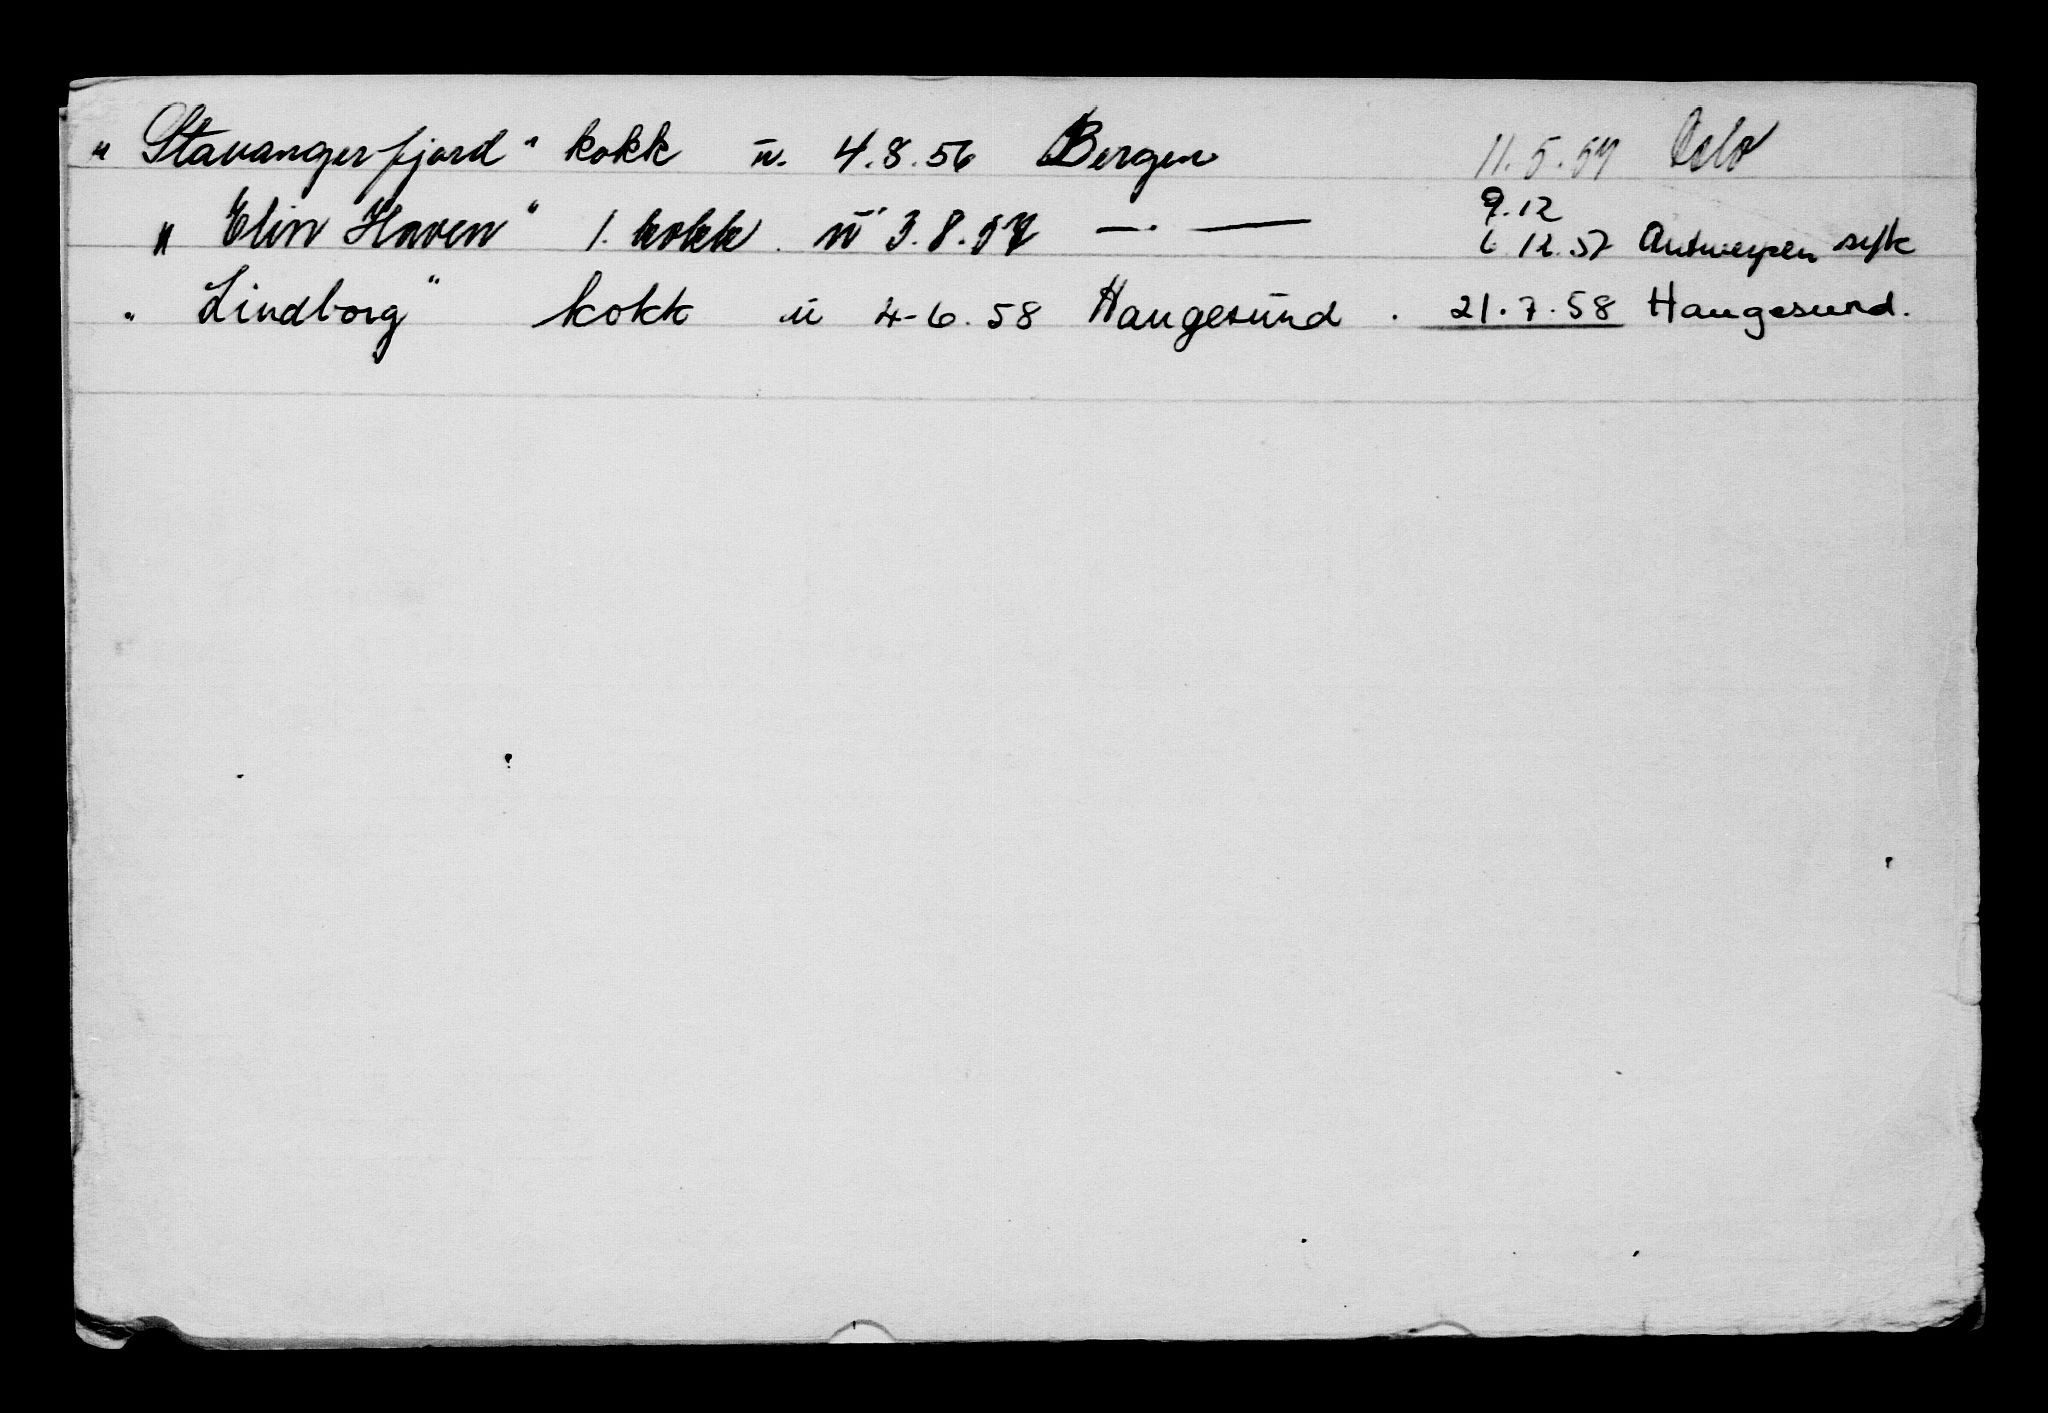 " Stavangerfjord " kokk u. 4.8.56 Bergen 11.5.57 Oslo
9.12
" Elin Haven " 1. kokk u 3.8.57 — . — 6.12.57 Antwerpen syk
" Lindborg " kokk u 4-6.58 Haugesund . 21.7.58 Haugesund.